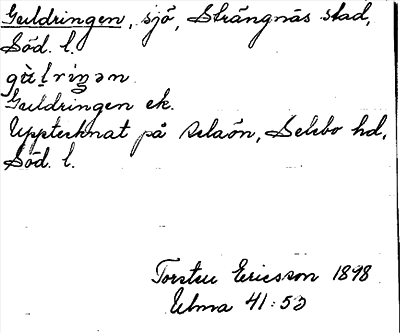 Guldringen, sjö, Strängnäs stad,
Söd. l.
gùḷríŋən.
Guldringen ek.
Upptecknat på Selaön, Selebo hd,
Söd. l.
Torsten Ericsson 1898
Ulma 41:53